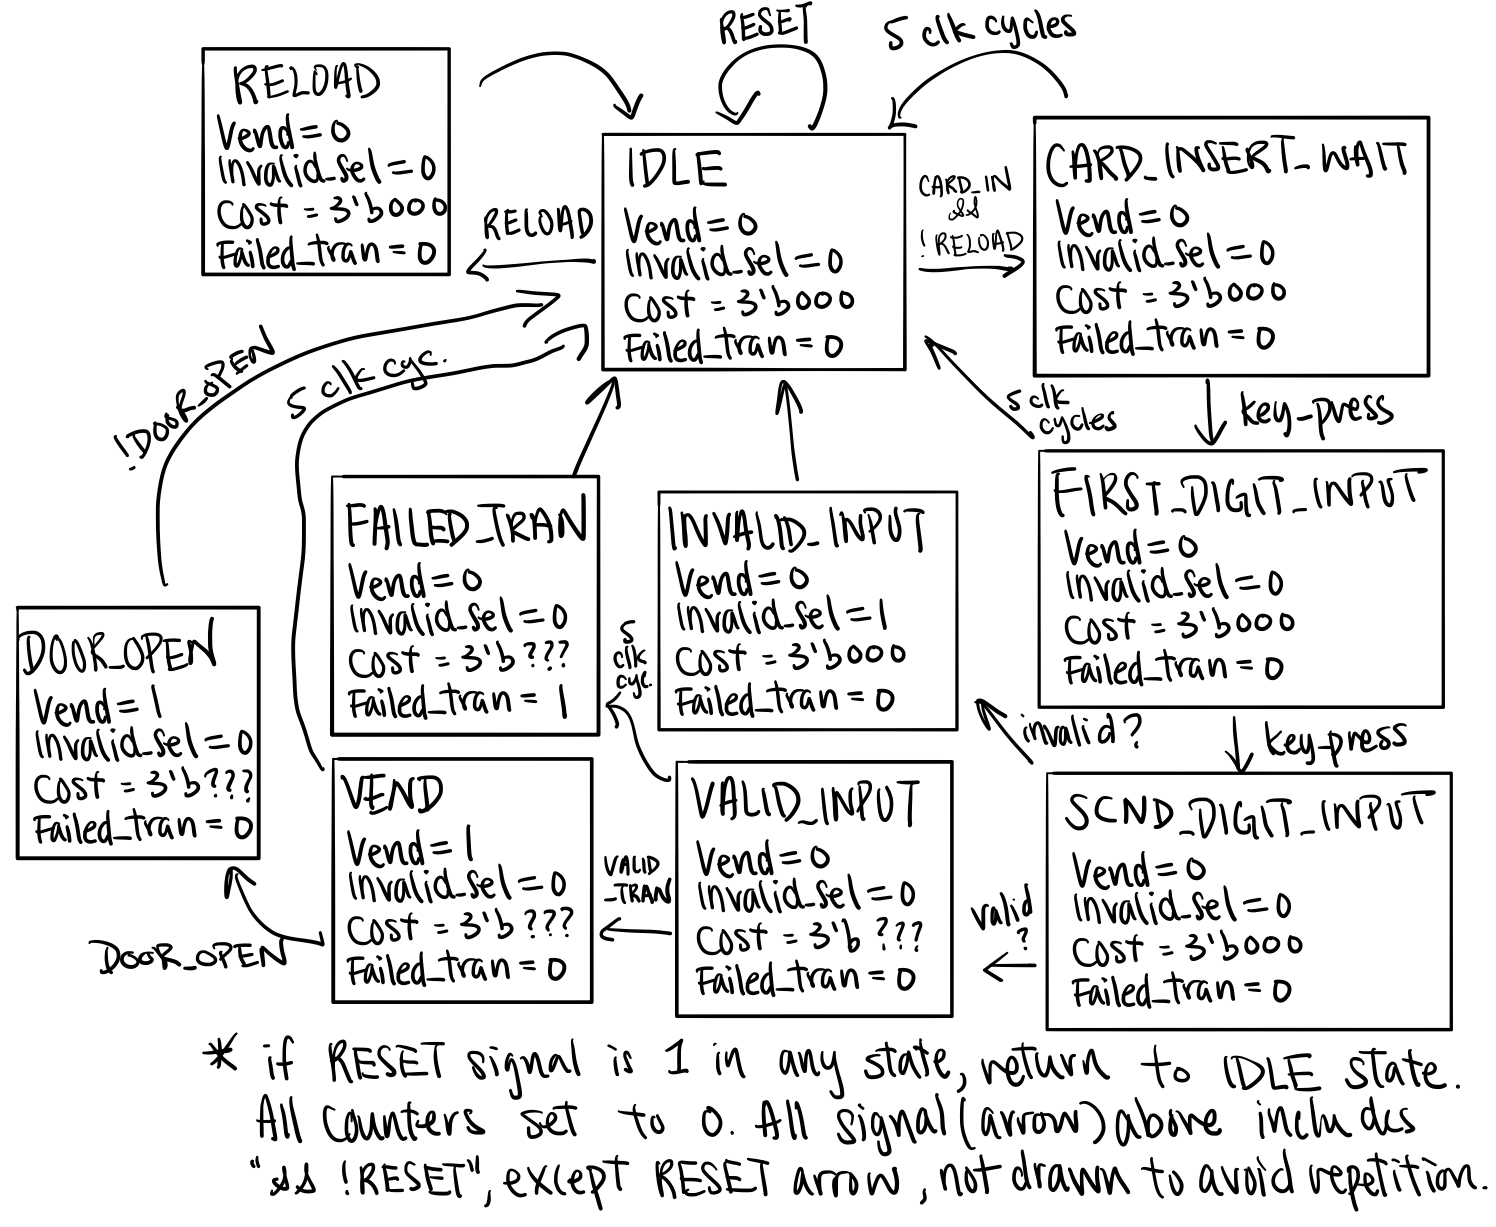 RESET
5 clk cycles
RELOAD
Vend = 0
Invalid_sel = 0
Cost = 3'b000
Failed_tran = 0
RELOAD
IDLE
Vend = 0
Invalid_sel = 0
Cost = 3'b000
Failed_tran = 0
CARD_IN
&&
!RELOAD
CARD_INSERT_WAIT
Vend = 0
Invalid_sel = 0
Cost = 3'b000
Failed_tran = 0
!DOOR_OPEN
5 clk cyc.
5 clk
cycles
key-press
FAILED_TRAN
Vend = 0
Invalid_sel = 0
Cost = 3'b???
Failed_tran = 1
INVALID_INPUT
Vend = 0
Invalid_sel = 1
Cost = 3'b000
Failed_tran = 0
FIRST_DIGIT_INPUT
Vend = 0
Invalid_sel = 0
Cost = 3'b000
Failed_tran = 0
5
clk
cyc.
invalid?
key-press
DOOR_OPEN
Vend = 1
Invalid_sel = 0
Cost = 3'b???
Failed_tran = 0
VEND
Vend = 1
Invalid_sel = 0
Cost = 3'b???
Failed_tran = 0
VALID
_TRAN
VALID_INPUT
Vend = 0
Invalid_sel = 0
Cost = 3'b???
Failed_tran = 0
valid
?
SCND_DIGIT_INPUT
Vend = 0
Invalid_sel = 0
Cost = 3'b000
Failed_tran = 0
DOOR_OPEN
* if RESET signal is 1 in any state, return to IDLE state.
All counters set to 0. All signal (arrow) above includes
"&& !RESET", except RESET arrow, not drawn to avoid repetition.